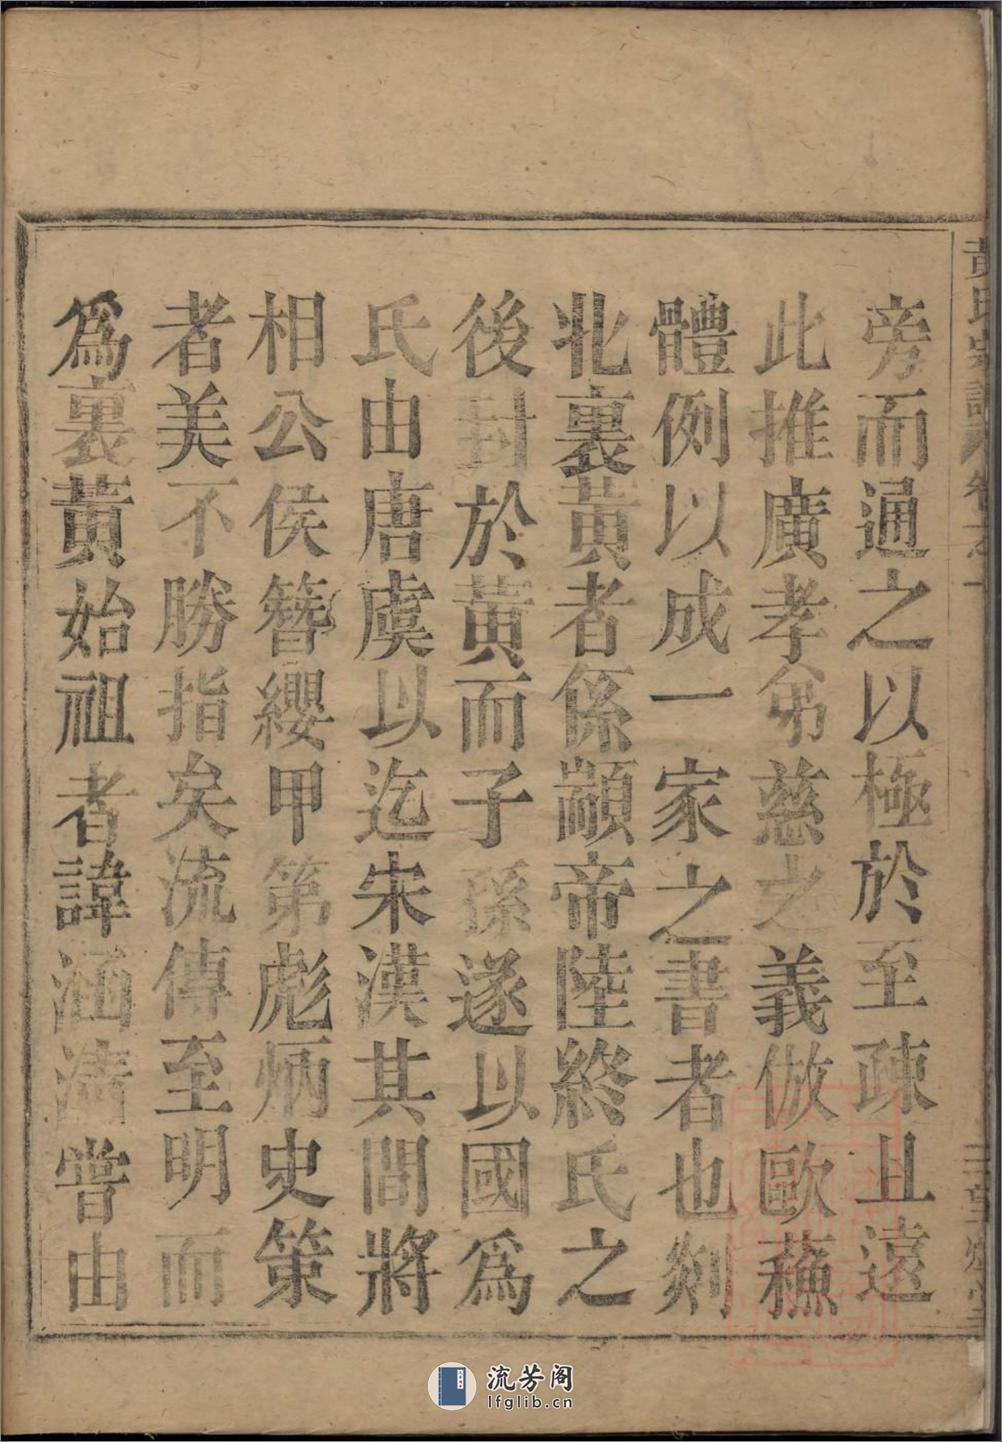 黃氏宗譜 卷之一
旁而通之以極於至疎且遠
此推廣孝弟慈之義倣歐蘓
體例以成一家之書者也剡
北裏黃者係顓帝陸終氏之
後封於黃而子孫遂以國為
氏由唐虞以迄宋漢其間將
相公侯簪纓甲第彪炳史策
者美不勝指矣流傳至明而
為裏黃始祖者諱涵清嘗由
流芳阁
lfglib.cn